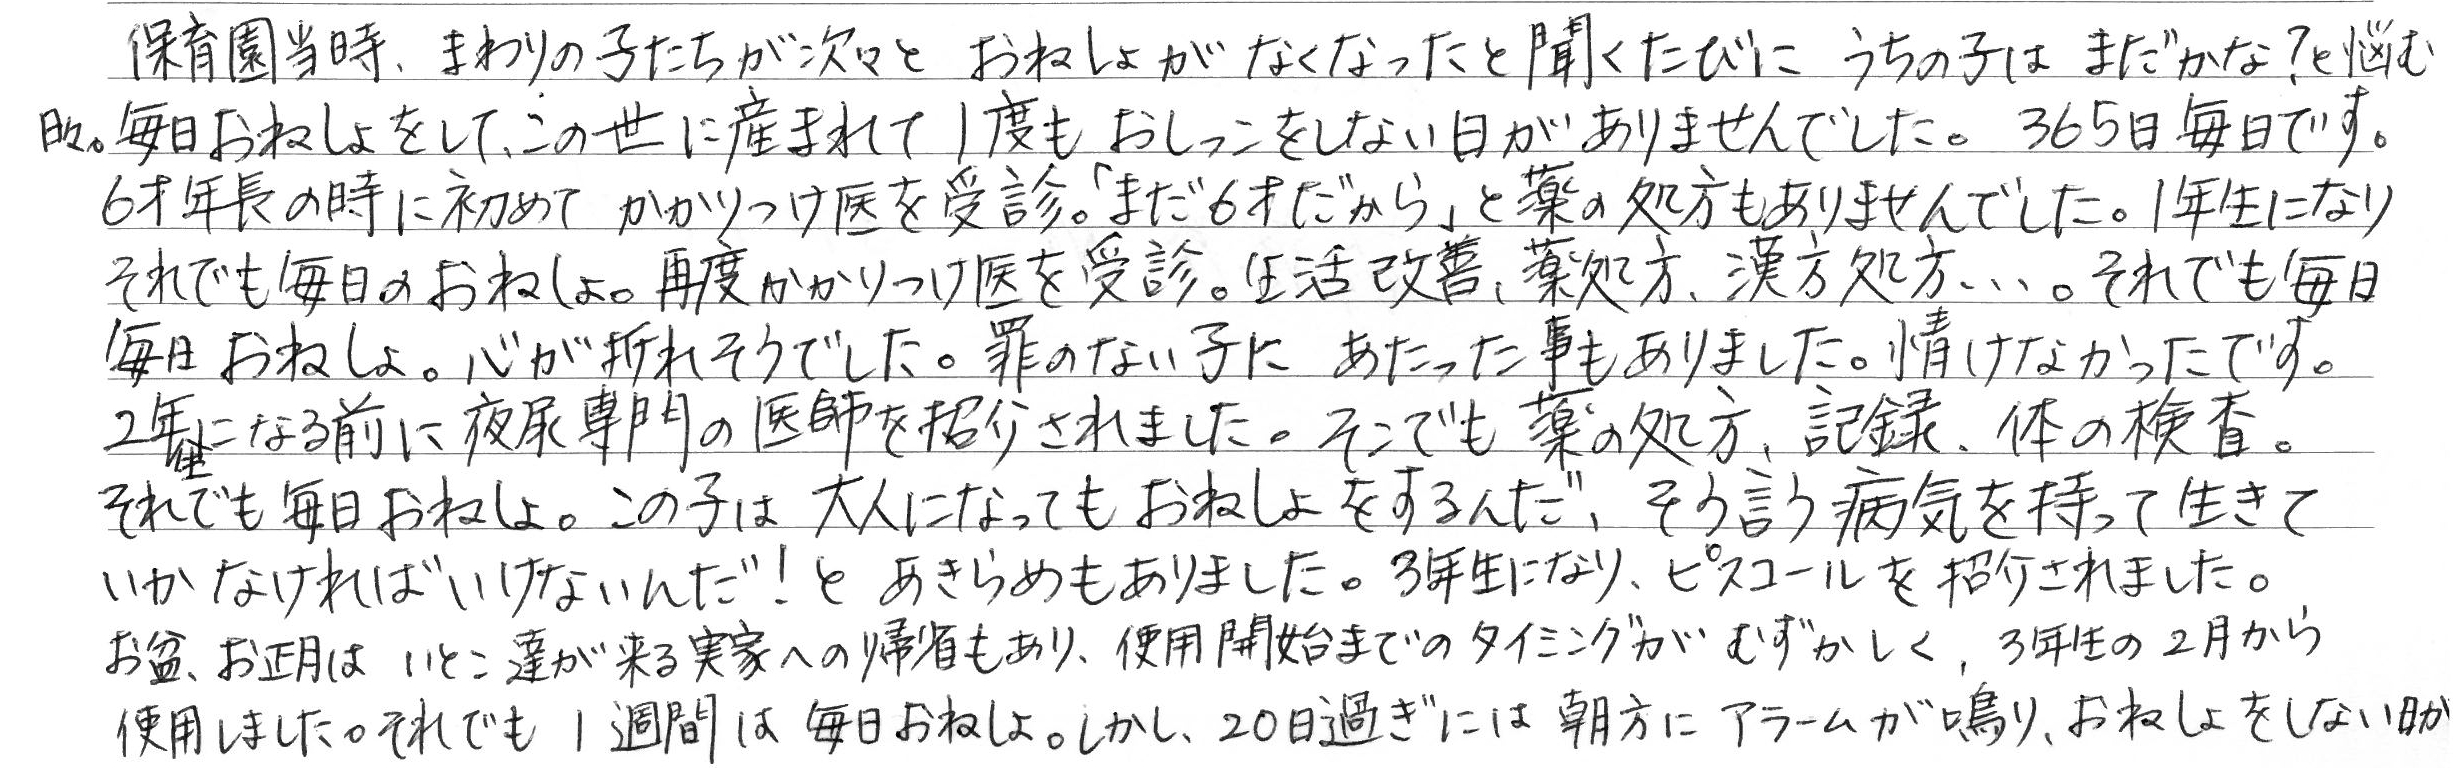 保育園当時、まわりの子たちが次々と おねしょが なくなったと聞くたびに うちの子は まだかな?と悩む
日々。毎日おねしょをして、この世に産まれて1度も おしっこをしない日がありませんでした。365日毎日です。
6才年長の時に初めて かかりつけ医を受診。「まだ6才だから」と薬の処方もありませんでした。1年生になり
それでも毎日のおねしょ。再度かかりつけ医を受診。生活改善、薬処方、漢方処方、、、。それでも毎日
毎日おねしょ。心が折れそうでした。罪のない子に あたった事もありました。情けなかったです。
2年生になる前に夜尿専門の医師を招介されました。そこでも薬の処方、記録、体の検査。
それでも毎日おねしょ。この子は大人になってもおねしょをするんだ、そう言う病気を持って生きて
いかなければいけないんだ!と あきらめもありました。3年生になり、ピスコールを招介されました。
お盆、お正月は いとこ達が来る実家への帰省もあり、使用開始までのタイミングが むずかしく、3年生の2月から
使用しました。それでも1週間は毎日おねしょ。しかし、20日過ぎには朝方にアラームが鳴り、おねしょをしない日が